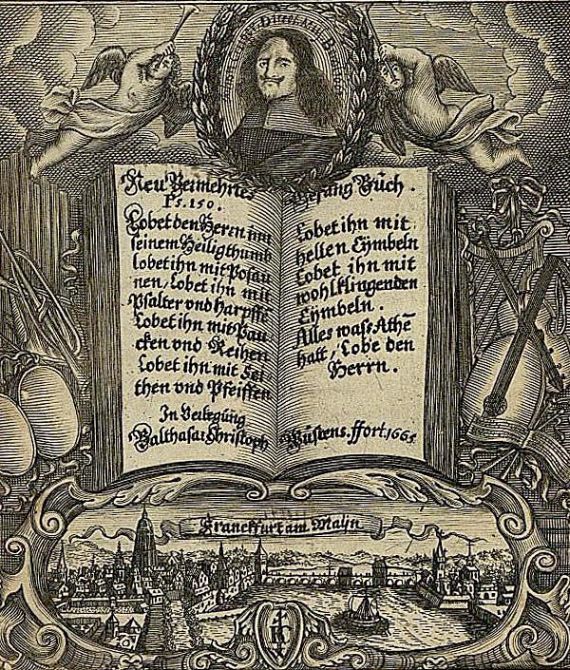 Neu Vermehrtes
Ps. 150.
Lobet den Herrn inn
seinem Heiligthumb
lobet ihn mit Posau
nen, lobet ihn mit
Psalter vnd Harpffe
Lobet ihn mit Pau
cken vnd Reihen
Lobet ihn mit Sei
then vnd Pfeiffen
In Verlegung
Balthasar Christoph
Gesang Buch.
Lobet ihn mit
hellen Cymbeln
Lobet ihn mit
wohlklingenden
Cymbeln.
Alles wass Athē
hatt, Lobe den
Herrn.
Wüstens. ffort. 1665
Franckfurt am Maijn